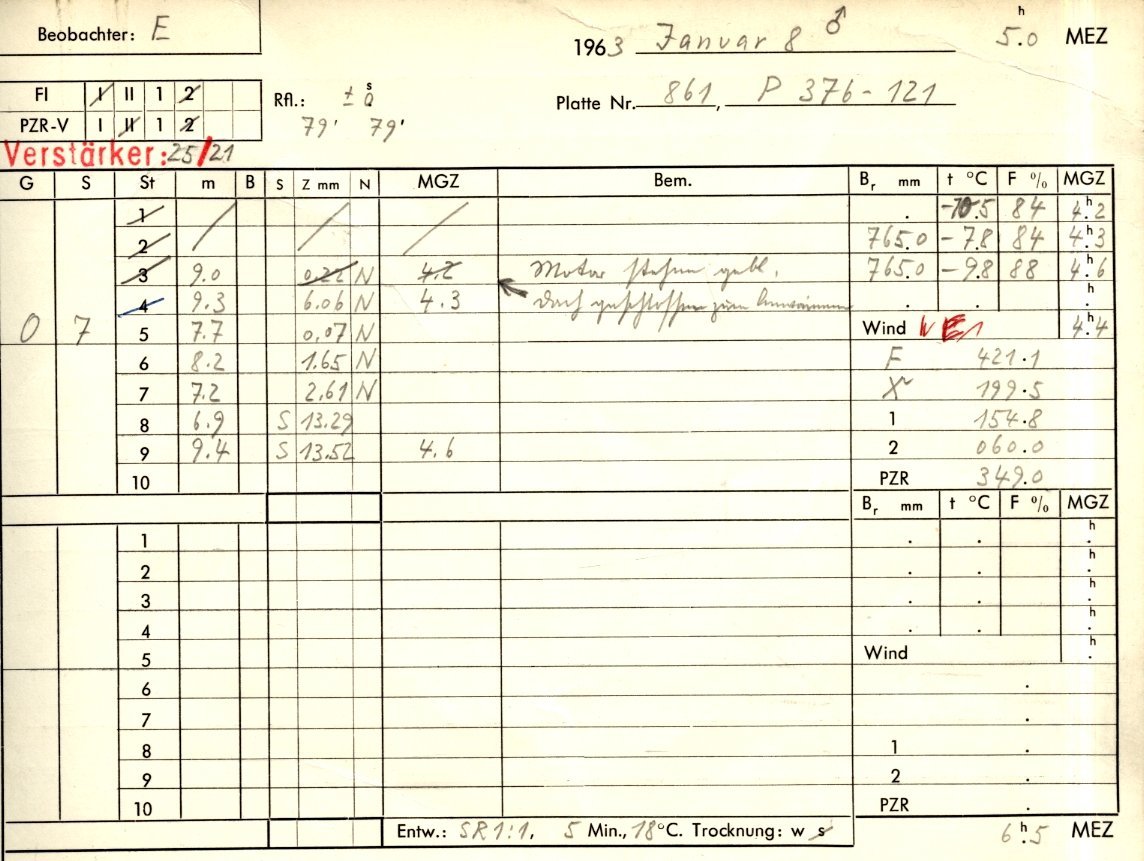 Beobachter: E
1963 Januar 8 ♂ 5h.0 MEZ
FI I II 1 2
Rfl.: ± s
Platte Nr. 861, P 376-121
PZR-V I II 1 2
79' 79'
Verstärker: 25/21
G S St m B S Z mm N MGZ Bem. Br mm t °C F % MGZ
1 . -10.5 84 4h.2
2 765.0 -7.8 84 4h.3
3 9.0 0.22 N 4.2 Motor stehen gebl. 765.0 -9.8 88 4h.6
4 9.3 6.06 N 4.3 Dach geschlossen zum . . h.
0 7 5 7.7 0.07 N Wind 4h.4
6 8.2 1.65 N F 421.1
7 7.2 2.61 N 199.5
8 6.9 S 13.29 1 154.8
9 9.4 S 13.52 4.6 2 060.0
10 PZR 349.0
Br mm t °C F % MGZ
1 . . h.
2 . . h.
3 . . h.
4 . . h.
5 Wind h.
6 .
7 .
8 1 .
9 2 .
10 PZR .
Entw.: SR1:1, 5 Min., 18°C. Trocknung: w s 6h.5 MEZ